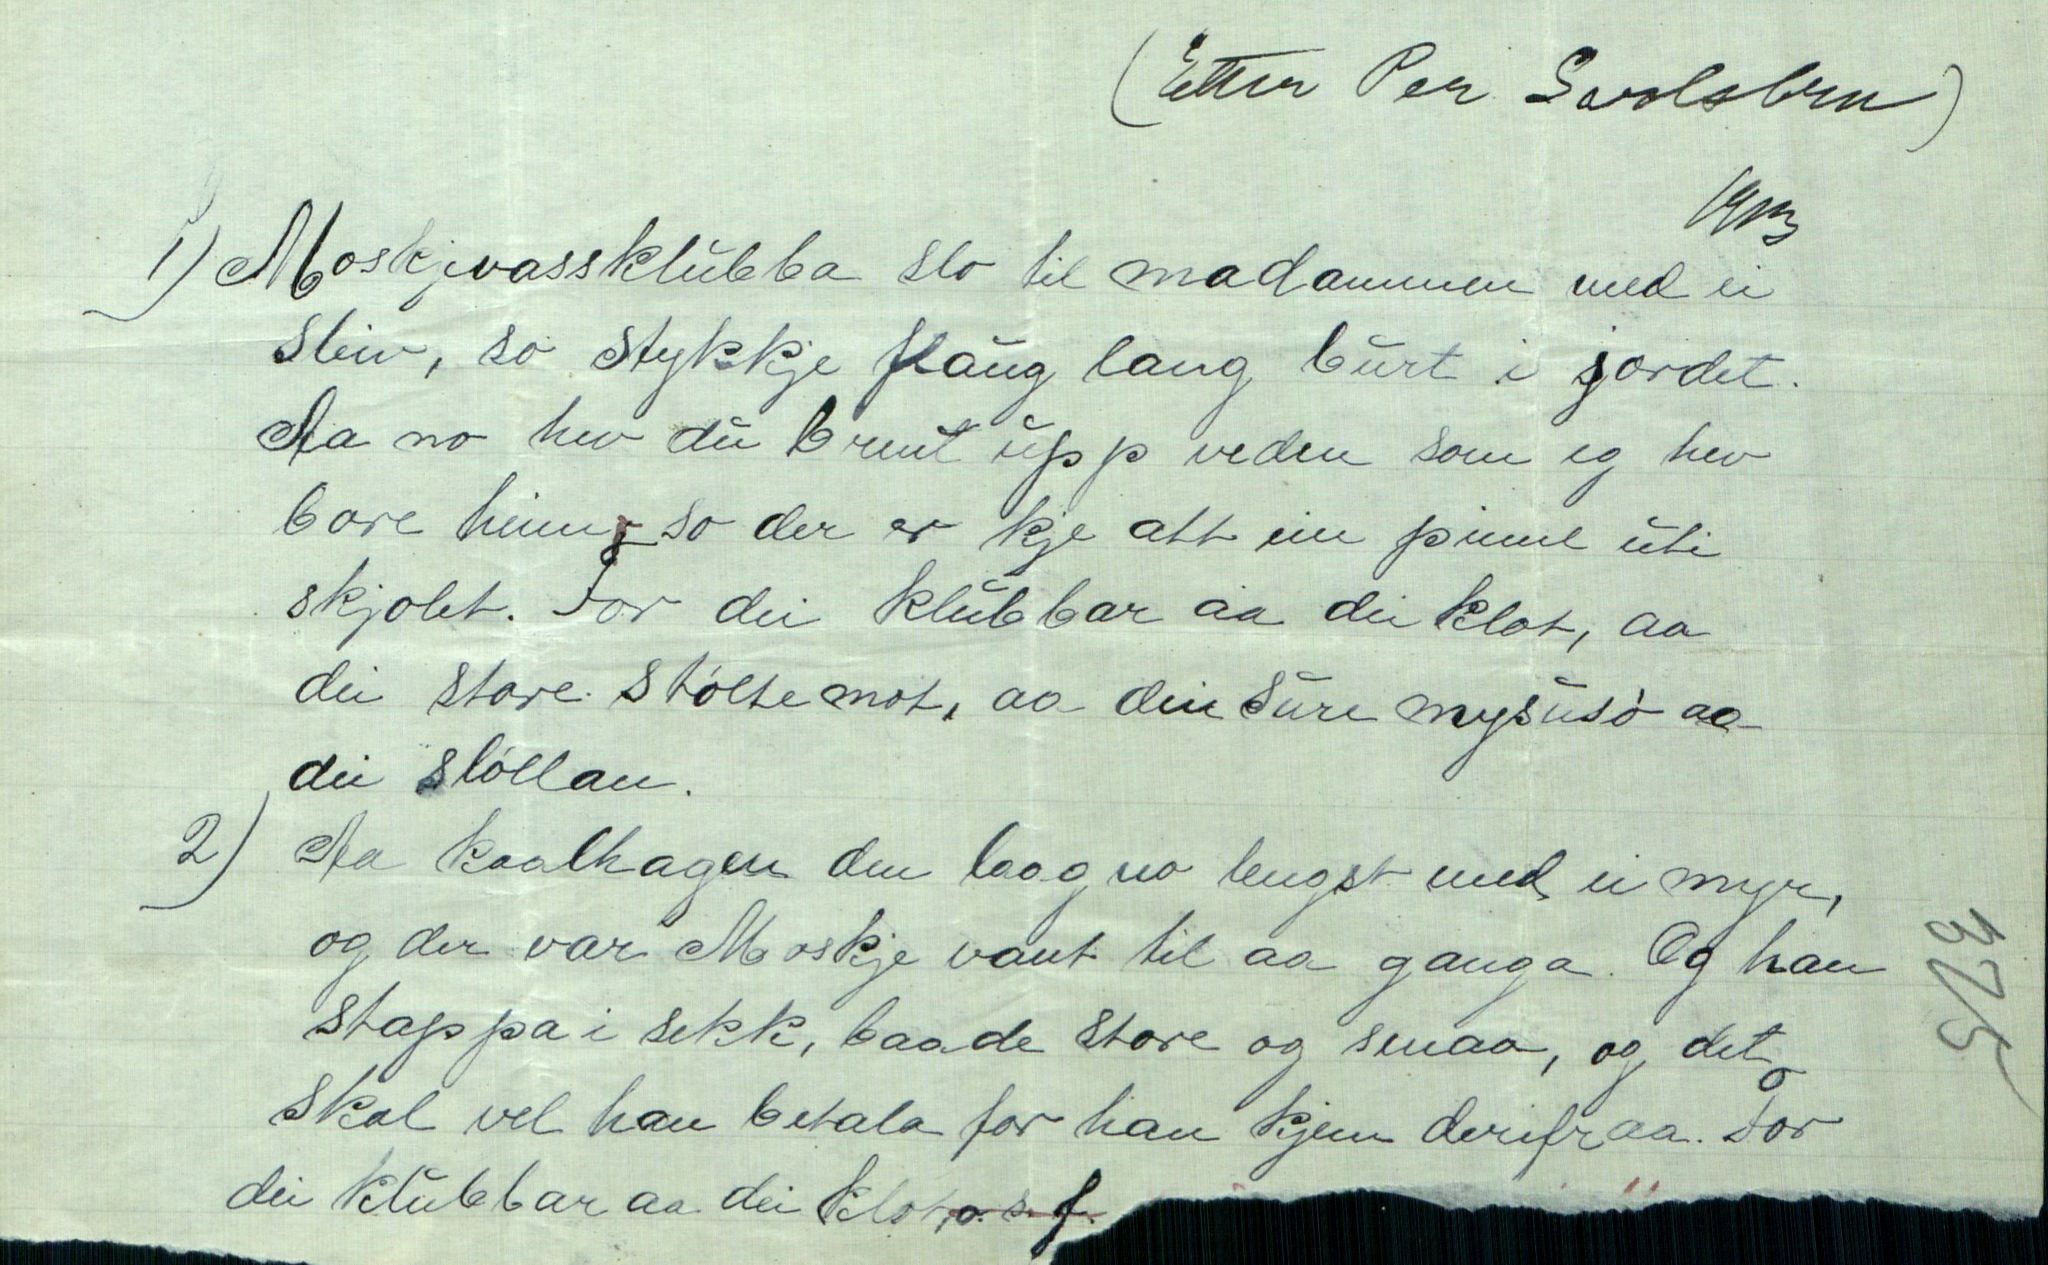 (Etter Per Svolsbru)
1913
1) Moskjevassklubba slo til madammen med ei
sleiv, so stykkje flaug lang burt i jordet.
Aa no hev du brent upp veden som eg hev
bore heim, so der er kje att ein pinne uti
skjolet. For dei klubbar aa dei klot, aa
dei store stólte not, aa dei sure mysusò aa
dei slóllan.
2) Aa kaalhagen den laag no lengst med ei myr,
og der var Moskje vant til aa ganga. Og han
stappa i sekk, baade store og smaa, og det
skal vel han betala for han kjem derifraa. For
dei klubbar aa dei klot, o. s. f.
375